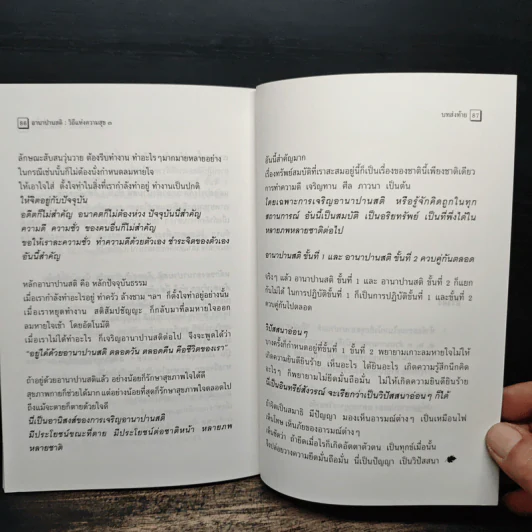 86 อานาปานสติ : วิถีแห่งความสุข ๑
ลักษณะสับสนวุ่นวาย ต้องรีบทำงาน ทำอะไรๆมากมายหลายอย่าง
ในกรณีเช่นนั้นก็ไม่ต้องนั่งกำหนดลมหายใจ
ให้เอาใจใส่ ตั้งใจทำในสิ่งที่เรากำลังทำอยู่ ทำงานเป็นปกติ
ให้จิตอยู่กับปัจจุบัน
อดีตก็ไม่สำคัญ อนาคตก็ไม่ต้องห่วง ปัจจุบันนี้สำคัญ
ความดี ความชั่ว ของคนอื่นก็ไม่สำคัญ
ขอให้เราละความชั่ว ทำความดีด้วยตัวเอง ชำระจิตของตัวเอง
อันนี้สำคัญ
หลักอานาปานสติ คือ หลักปัจจุบันธรรม
เมื่อเรากำลังทำอะไรอยู่ ทำครัว ล้างชาม ฯลฯ ก็ตั้งใจทำอยู่อย่างนั้น
เมื่อเราหยุดทำงาน สติสัมปชัญญะ ก็กลับมาที่ลมหายใจออก
ลมหายใจเข้า โดยอัตโนมัติ
เมื่อเราไม่ได้ทำอะไร ก็เจริญอานาปานสติต่อไป จึงจะพูดได้ว่า
"อยู่ได้ด้วยอานาปานสติ ตลอดวัน ตลอดคืน คือชีวิตของเรา"
ถ้าอยู่ด้วยอานาปานสติแล้ว อย่างน้อยก็รักษาสุขภาพใจได้ดี
สุขภาพกายก็ช่วยได้มาก แต่อย่างน้อยที่สุดก็รักษาสุขภาพใจตลอดไป
ถึงแม้จะตายก็ตายด้วยใจดี
นี้เป็นอานิสงส์ของการเจริญอานาปานสติ
มีประโยชน์ขณะที่ตาย มีประโยชน์ต่อชาติหน้า หลายภพ
หลายชาติ
บทส่งท้าย 87
อันนี้สำคัญมาก
เรื่องทรัพย์สมบัติที่เราสะสมอยู่นี้ก็เป็นเรื่องของชาตินี้เพียงชาติเดียว
การทำความดี เจริญทาน ศีล ภาวนา เป็นต้น
โดยเฉพาะการเจริญอานาปานสติ หรือรู้จักคิดถูกในทุก
สถานการณ์ อันนี้เป็นสมบัติ เป็นอริยทรัพย์ เป็นที่พึ่งได้ใน
หลายภพหลายชาติต่อไป
อานาปานสติ ขั้นที่ 1 และ อานาปานสติ ขั้นที่ 2 ควบคู่กันตลอด
จริงๆ แล้ว อานาปานสติ ขั้นที่ 1 และ อานาปานสติ ขั้นที่ 2 ก็แยก
กันไม่ได้ ในการปฏิบัติขั้นที่ 1 ก็เป็นการปฏิบัติขั้นที่ 1 และขั้นที่ 2
ควบคู่กันไปตลอด
วิปัสสนาอ่อนๆ
บางครั้งก็กำหนดอยู่ที่ขั้นที่ 1 ขั้นที่ 2 พยายามเกาะลมหายใจไม่ให้
เกิดความยินดียินร้าย เห็นอะไร ได้ยินอะไร เกิดความรู้สึกนึกคิด
อะไรๆ ก็พยายามไม่ยึดมั่นถือมั่น ไม่ให้เกิดความยินดียินร้าย
นี้เป็นอินทรีย์สังวรณ์ จะเรียกว่าเป็นวิปัสสนาอ่อนๆ ก็ได้
ถ้าจิตเป็นสมาธิ มีปัญญา มองเห็นอารมณ์ต่างๆ เป็นเหมือนไฟ
เห็นโทษ เห็นภัยของอารมณ์ต่างๆ
เห็นชัดว่า ถ้ายึดเมื่อไรก็เกิดอัตตาตัวตน เป็นทุกข์เมื่อนั้น
จึงปล่อยวางความยึดมั่นถือมั่น นี่เป็นปัญญา เป็นวิปัสสนา